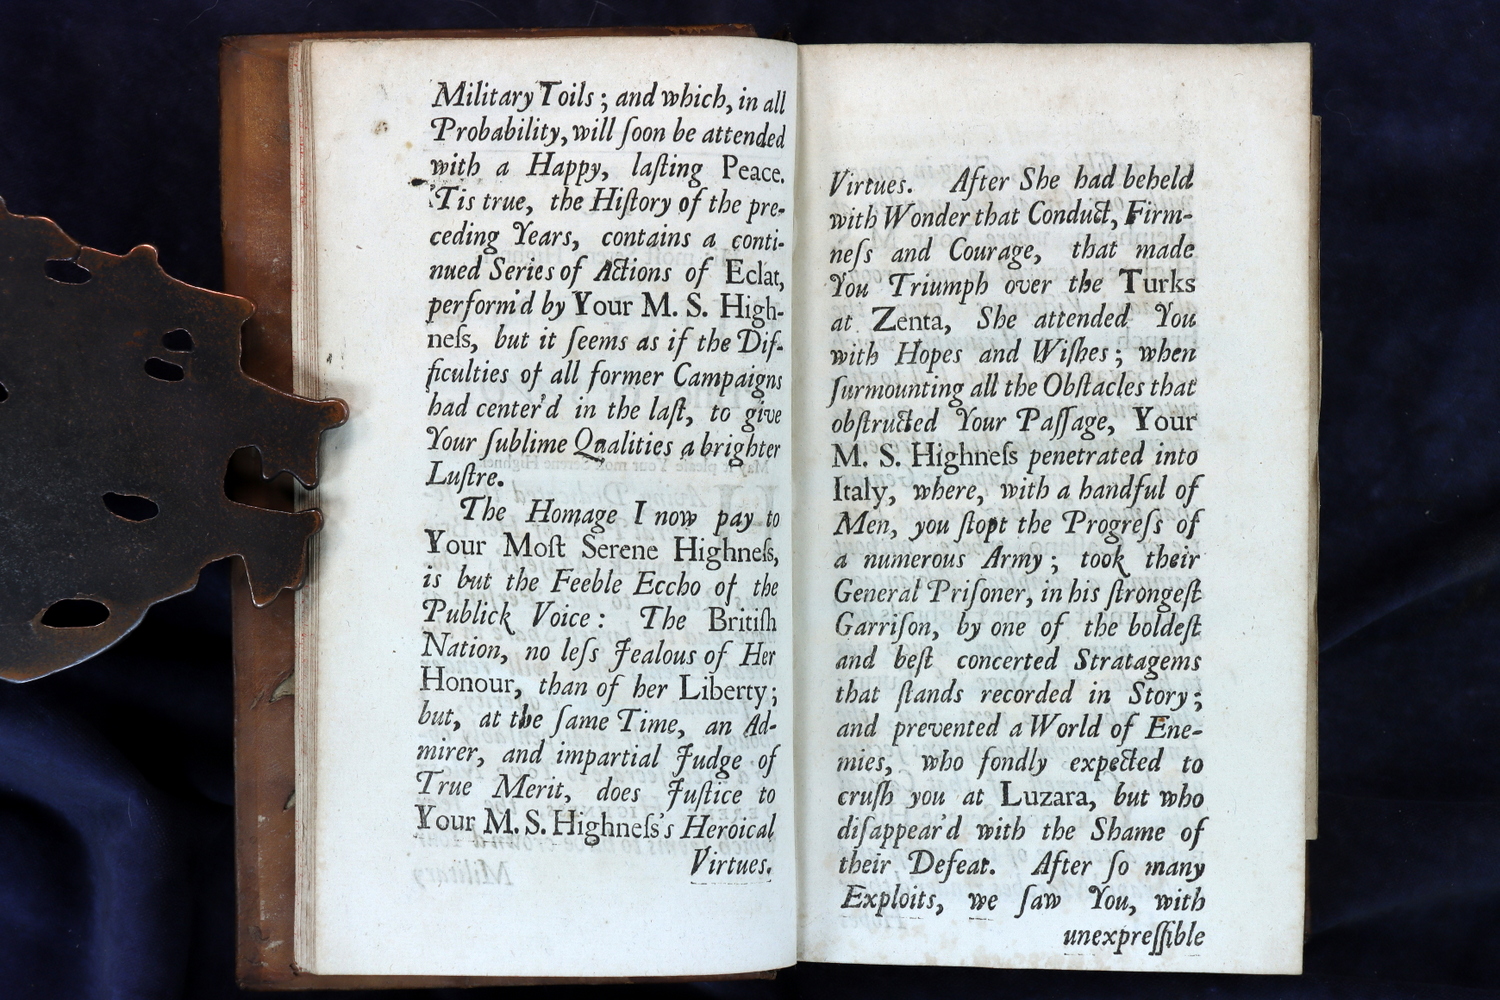 Military Toils; and which, in all
Probability, will ſoon be attended
with a Happy, laſting Peace.
'Tis true, the Hiſtory of the pre-
ceding Years, contains a conti-
nued Series of Actions of Eclat,
perform'd by Your M. S. High-
neſs, but it ſeems as if the Dif-
ficulties of all former Campaigns
had center'd in the laſt, to give
Your ſublime Qualities a brighter
Luſtre.
The Homage I now pay to
Your Moſt Serene Highneſs,
is but the Feeble Eccho of the
Publick Voice: The Britiſh
Nation, no leſs Jealous of Her
Honour, than of her Liberty;
but, at the ſame Time, an Ad-
mirer, and impartial Judge of
True Merit, does Juſtice to
Your M. S. Highneſs's Heroical
Virtues.
Virtues. After She had beheld
with Wonder that Conduct, Firm-
neſs and Courage, that made
You Triumph over the Turks
at Zenta, She attended You
with Hopes and Wiſhes; when
ſurmounting all the Obſtacles that
obſtructed Your Paſſage, Your
M. S. Highneſs penetrated into
Italy, where, with a handful of
Men, you ſtopt the Progreſs of
a numerous Army; took their
General Priſoner, in his ſtrongeſt
Garriſon, by one of the boldeſt
and beſt concerted Stratagems
that ſtands recorded in Story;
and prevented a World of Ene-
mies, who fondly expected to
cruſh you at Luzara, but who
diſappear'd with the Shame of
their Defeat. After ſo many
Exploits, we ſaw You, with
unexpreſſible